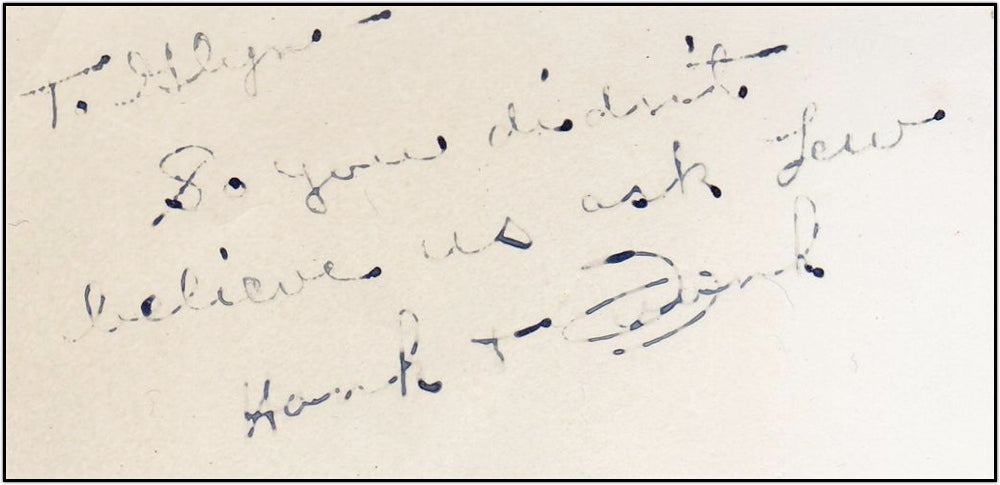 To
So you didn't
believe us ask Lew
Hank + Dink